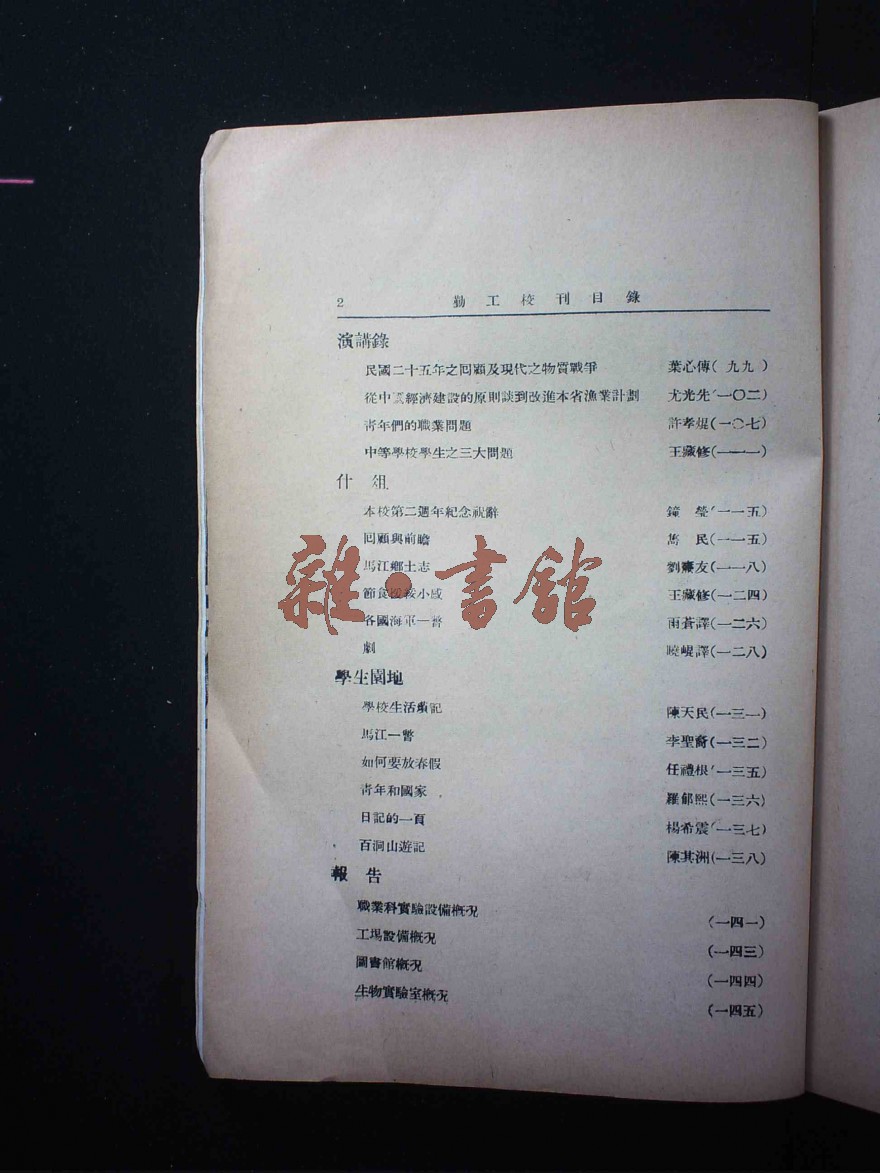 2 勤工校刊目錄
演講錄
民國二十五年之回顧及現代之物質戰爭 葉心傳(九九)
從中國經濟建設的原則談到改進本省漁業計劃 尤光先(一〇二)
青年們的職業問題 許孝焜(一〇七)
中等學校學生之三大問題 王藏修(一一一)
什俎
本校第二週年紀念祝辭 鐘瑩(一一五)
回顧與前瞻 雋民(一一五)
馬江鄉土志 劉友(一一八)
節食援綏小感 王藏修(一二四)
各國海軍一瞥 雨蒼譯(一二六)
劇 曉峴譯(一二八)
學生園地
學校生活瑣記 陳天民(一三一)
馬江一瞥 李聖裔(一三二)
如何要放春假 任禮根(一三五)
青年和國家 羅郁熙(一三六)
日記的一頁 楊希震(一三七)
百洞山遊記 陳其洲(一三八)
報告
職業科實驗設備概況 (一四一)
工場設備概況 (一四三)
圖書館概況 (一四四)
生物實驗室概況 (一四五)
雜·書館